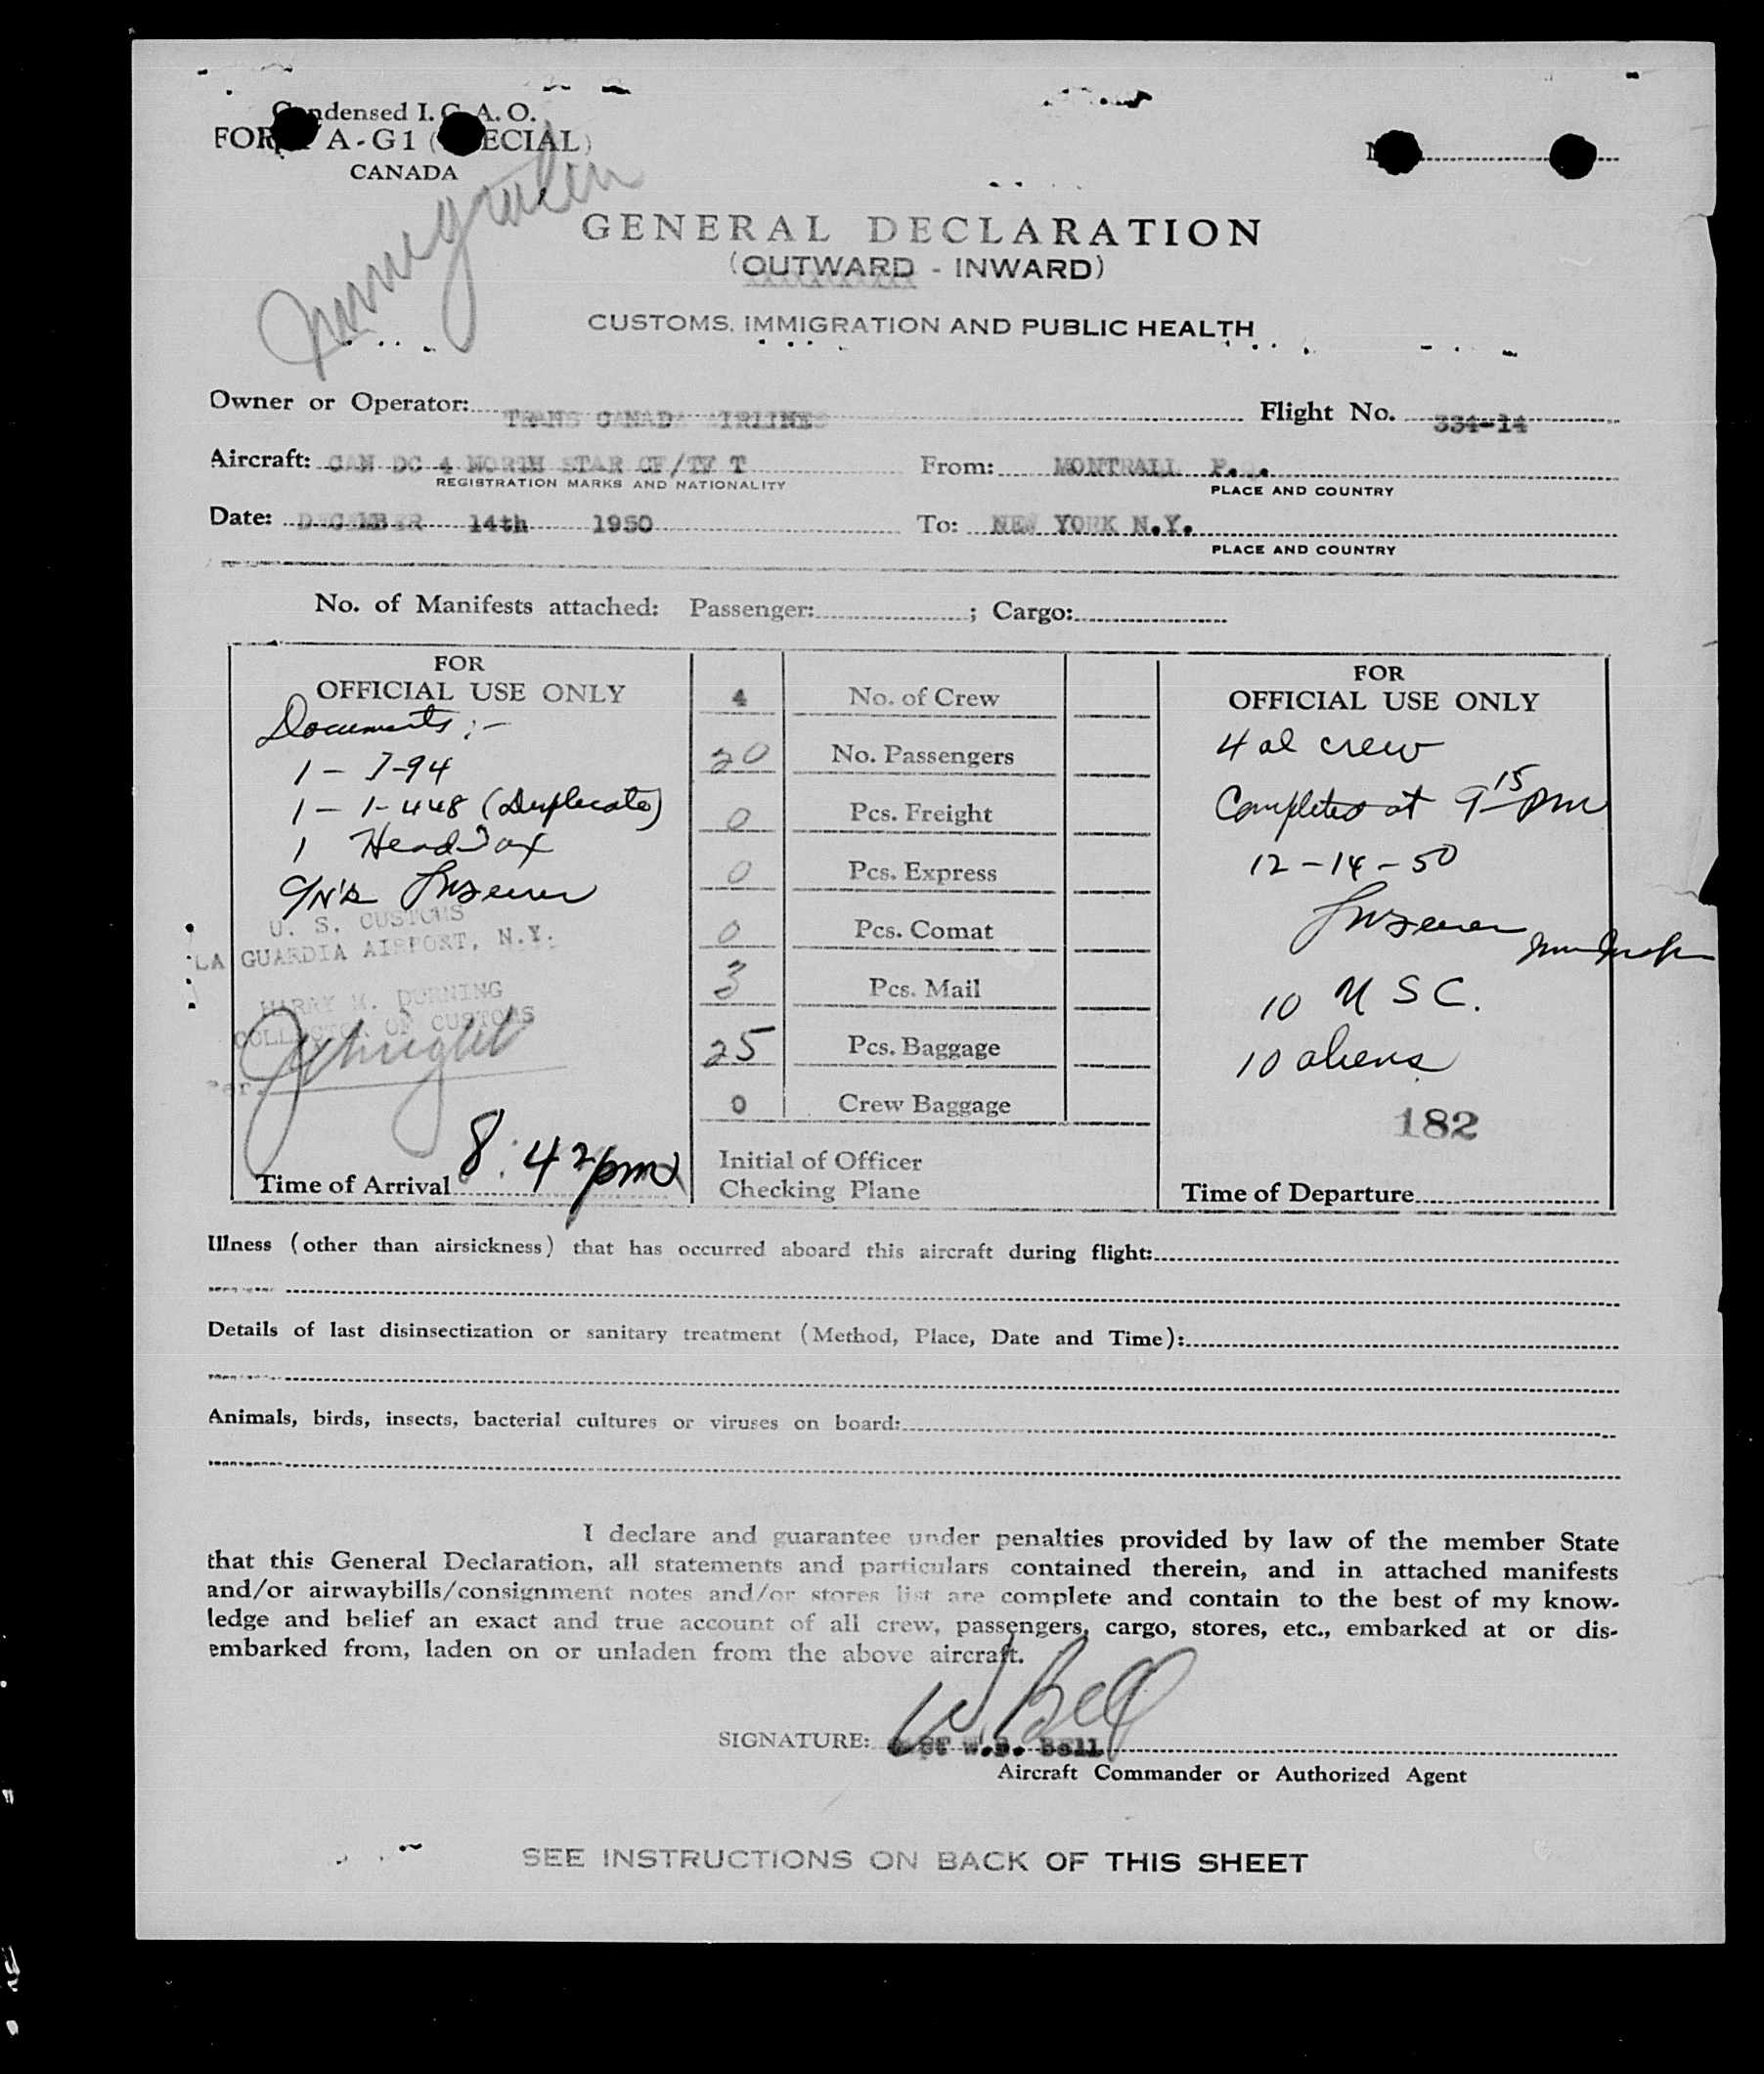 Condensed I. C. A. O.
FORM A-G1 (SPECIAL)
CANADA
Immigration
GENERAL DECLARATION
(OUTWARD - INWARD)
CUSTOMS, IMMIGRATION AND PUBLIC HEALTH
Owner or Operator: TRANS CANADA AIRLINES Flight No. 334-14
Aircraft: CAN DC 4 NORTH STAR CF/TF T From: MONTRALL P.Q.
REGISTRATION MARKS AND NATIONALITY PLACE AND COUNTRY
Date: DECEMBER 14th 1950 To: NEW YORK N.Y.
PLACE AND COUNTRY
No. of Manifests attached: Passenger: ; Cargo:
FOR
OFFICIAL USE ONLY
Documents :-
1 - I-94
1 - I-448 (Duplicate)
1 Head Tax
U. S. CUSTOMS
LA GUARDIA AIRPORT, N.Y.
HARRY M. DURNING
COLLECTOR OF CUSTOMS
Per.
Time of Arrival 8:42 pm
4 No. of Crew
20 No. Passengers
0 Pcs. Freight
0 Pcs. Express
0 Pcs. Comat
3 Pcs. Mail
25 Pcs. Baggage
0 Crew Baggage
Initial of Officer
Checking Plane
FOR
OFFICIAL USE ONLY
4 al crew
Completed at 9 15 pm
12-14-50
10 USC.
10 aliens
182
Time of Departure
Illness (other than airsickness) that has occurred aboard this aircraft during flight:
Details of last disinsectization or sanitary treatment (Method, Place, Date and Time):
Animals, birds, insects, bacterial cultures or viruses on board:
I declare and guarantee under penalties provided by law of the member State
that this General Declaration, all statements and particulars contained therein, and in attached manifests
and/or airwaybills/consignment notes and/or stores list are complete and contain to the best of my know-
ledge and belief an exact and true account of all crew, passengers, cargo, stores, etc., embarked at or dis-
embarked from, laden on or unladen from the above aircraft.
W Bell
SIGNATURE: W.B. Bell
Aircraft Commander or Authorized Agent
SEE INSTRUCTIONS ON BACK OF THIS SHEET